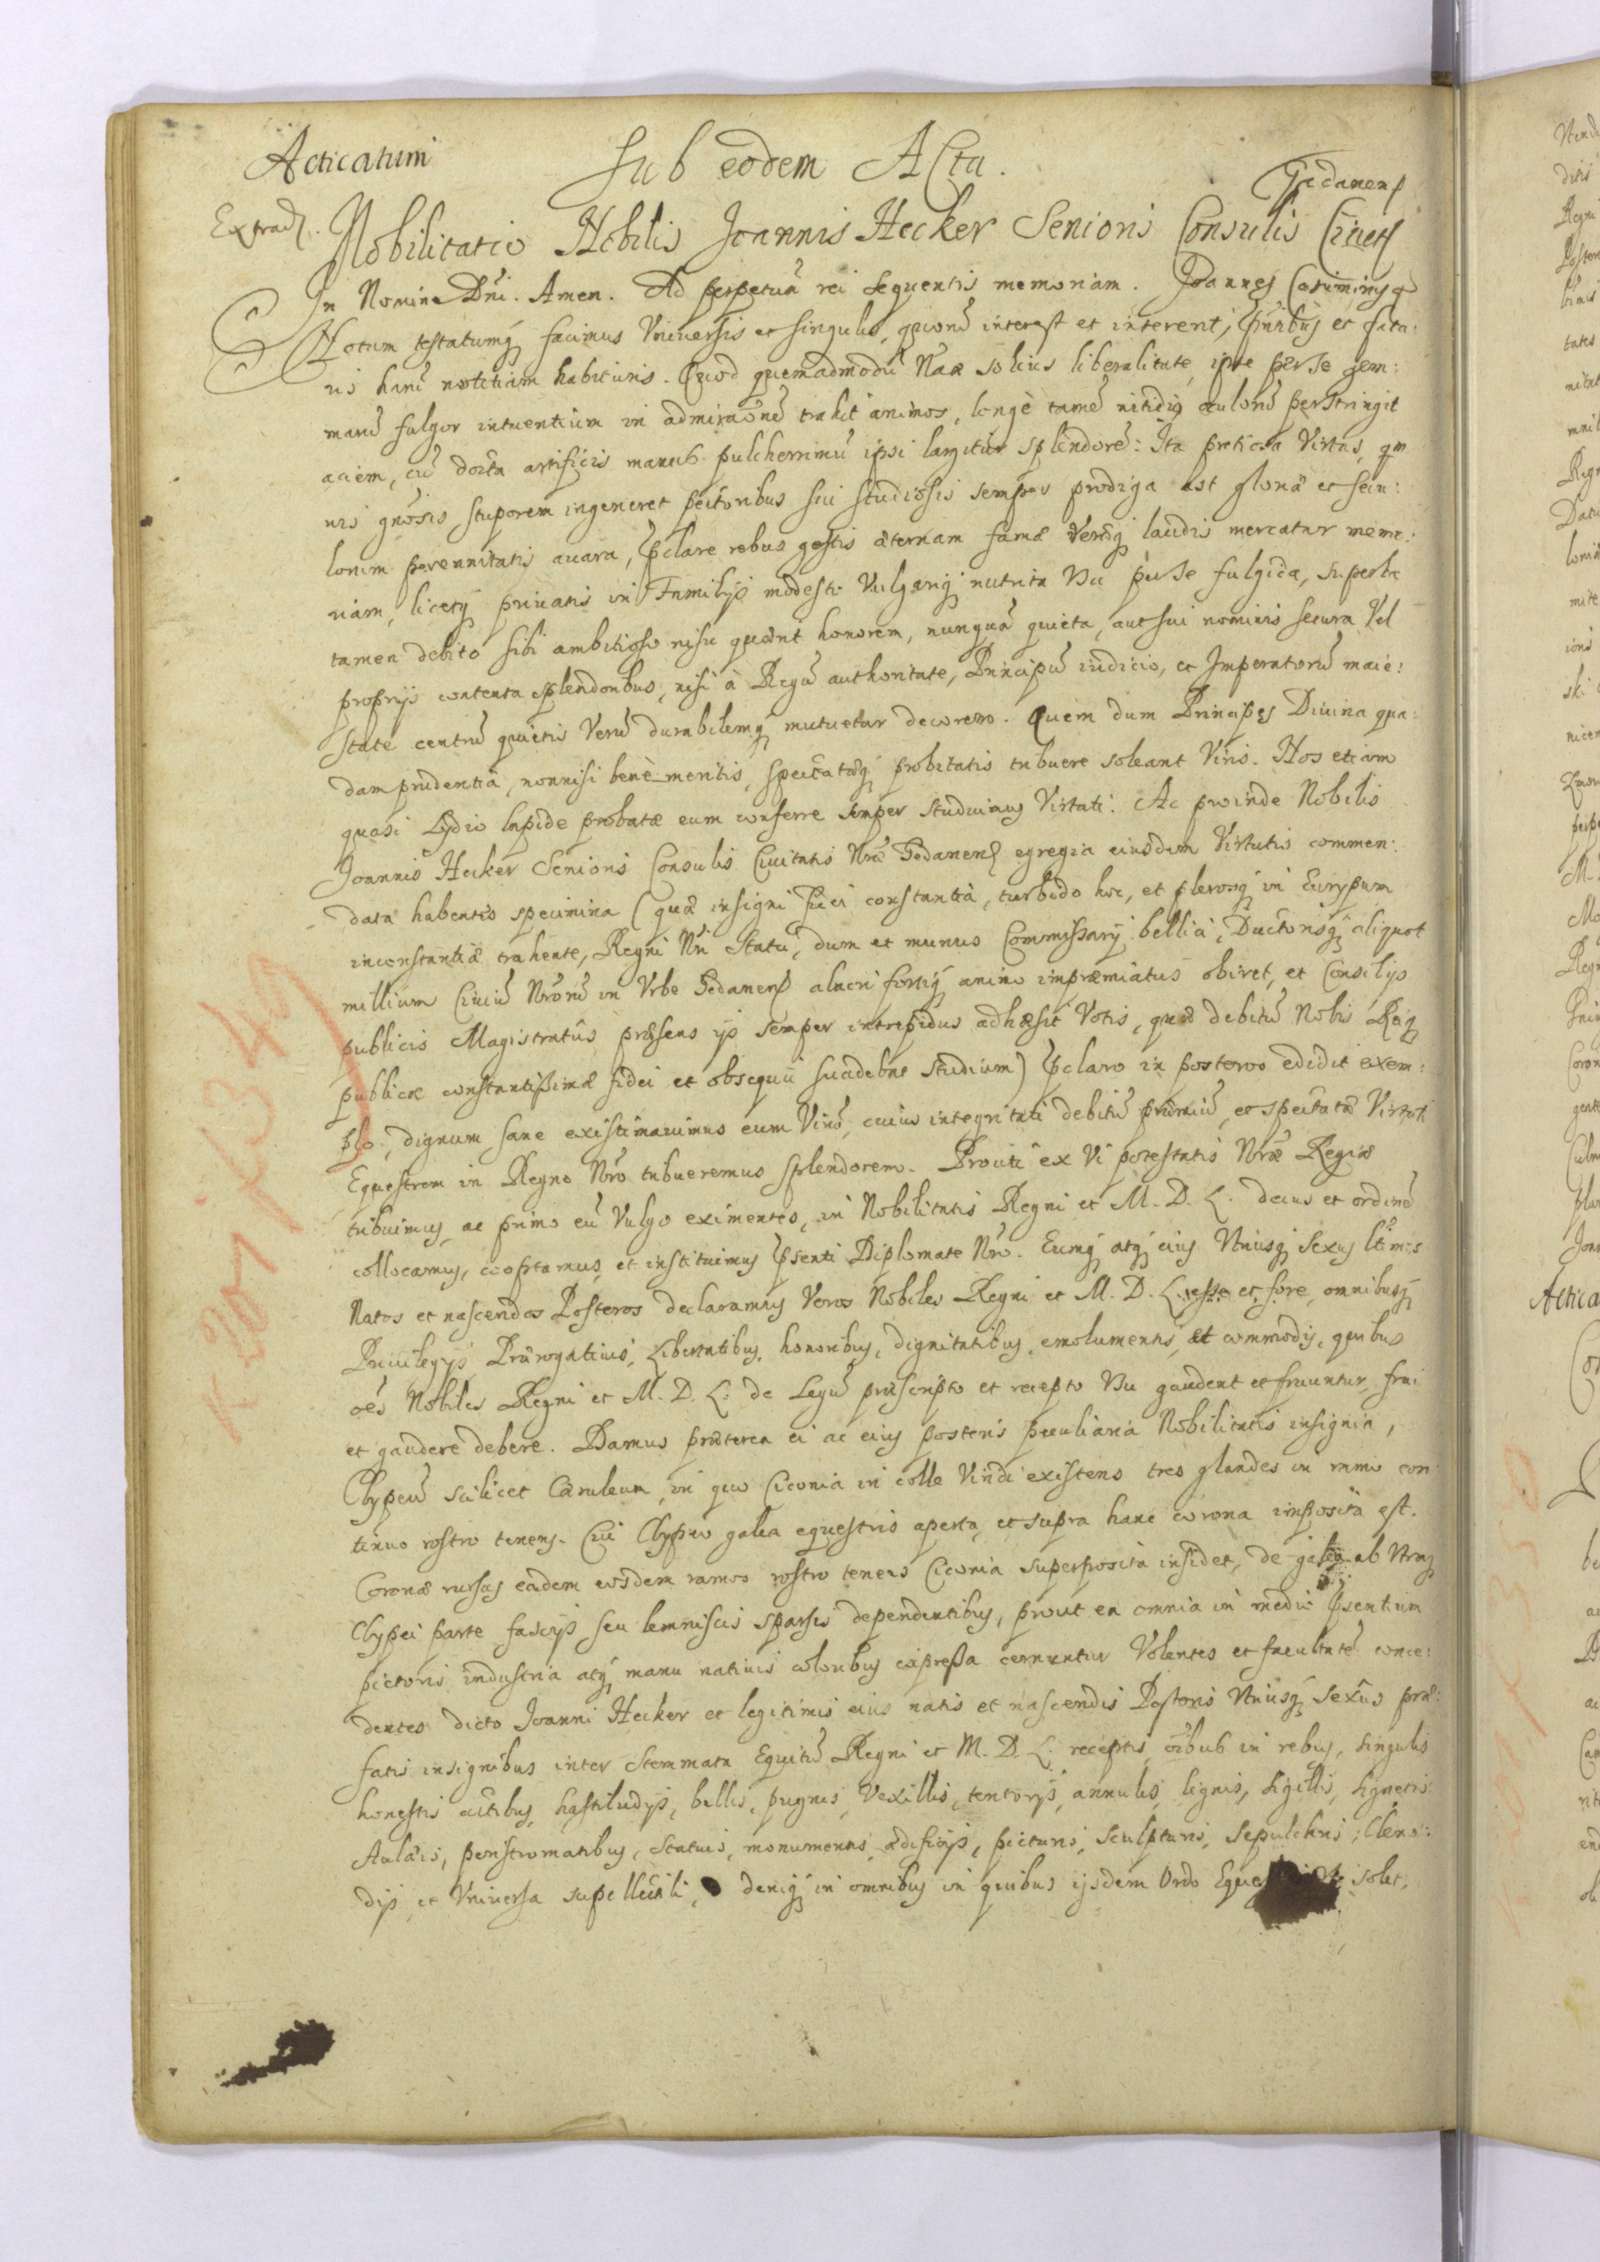 Acticatum
Sub eodem Acta.
Gedanens
Extrad.
Nobilitatio Nobilis Joannis Hecker Senioris Consulis Civit
In Nomine Dni. Amen. Ad perpetuā rei sequentis memoriam. Joannes Casimirus
Notum testatumq facimus Vniversis et singulis, quorū interest et intererit, pntibus et futu:
ris hanc notitiam habituris. Quod quemadmodū Nrae solius liberalitate, ipse per se gem:
marū fulgor intuentium in admiraōnē trahit animos, longè tamē nitidiꝰ oculorū perstringit
aciem, cū docta artificis manus pulcherrimū ipsi largitur splendorē: Ita pretiosa Virtus, qm
vis gnosis stuporem ingeneret pectoribus sui studiosis semper prodiga est gloriā et secu:
lorum perennitatis avara, pclare rebus gestis aeternam famae veraeq laudis mercatur memo:
riam, licetq privatis in Familijs modesto Vulgariq nutrita Vsu per se fulgida, superba
tamen debito sibi ambitioso nisu quaerit honorem, nunquā quieta, aut sui nominis secura Vel
proprijs contenta splendoribus, nisi à Regū authoritate, Principū iudicio, et Imperatorū maie:
state centrū quietis Verū durabilemq mutuetur decorem. Quem dum Principes Divina qua:
dam prudentiâ, nonnisi benè meritis, spectataeq probitatis tribuere soleant Viris. Nos etiam
quasi Lydio lapide probatae eum conferre semper studuimus Virtuti. Ac proinde Nobilis
Joannis Hecker Senioris Consulis Civitatis Nrae Gedanens egregia eiusdem Virtutis commen:
data habentes specimina (quâ insigni fidei constantiâ, turbido hoc, et plerosq in Eurypum
inconstantiae trahente, Regni Nri Statu, dum et munus Commissarij bellici, Ductorisq aliquot
millium Civiū Nrorū in Vrbe Gedanens alacri fortiq animo impraemiatus obiret, et Consilijs
publicis Magistratûs praesens ijs semper intrepidus adhaesit Votis, quae debitū Nobis Reiq
publicae constantissimae fidei et obsequii suadebat studium) pclaro in posteros edidit exem:
plo, dignum sane existimavimus eum Virū, cuius integritati debitū praemiū, et spectatae Virtuti
Equestrem in Regno Nro tribueremus splendorem. Prouti ex Vi potestatis Nrae Regiae
tribuimus, ac primo eū Vulgo eximentes, in Nobilitatis Regni et M. D. L. decus et ordinē
collocamus, cooptamus, et instituimus psenti Diplomate Nro. Eumq atq eius Vtriusq Sexus ltimos
Natos et nascendos Posteros declaramus Veros Nobiles Regni et M. D. L. esse et fore, omnibusq
Privilegijs, Praerogativis, Libertatibus, honoribus, dignitatibus, emolumentis, et commodis, quibus
oēs Nobiles Regni et M. D. L. de Legū praescripto et recepto Vsu gaudent et fruuntur, frui
et gaudere debere. Damus praeterea ei ac eius posteris peculiaria Nobilitatis insignia,
Clypeū scilicet Caeruleum, in quo Ciconia in colle Viridi existens tres glandes in ramo con
tinuo rostro tenens. Cui Clypeo galea equestris aperta, et supra hanc corona imposita est.
Coronae rursus eadem eosdem ramos rostro tenens Ciconia superposita insidet, de galea ab Vtraq
Clypei parte fascijs seu lemniscis sparsis dependentibus, prout ea omnia in medio psentium
pictoris industria atq manu nativis coloribus expressa cernuntur Volentes et facultatē conce:
dentes dicto Joanni Hecker et legitimis eius natis et nascendis Posteris Vtriusq Sexûs prae:
fatis insignibus inter Stemmata Equitū Regni et M. D. L. receptis, oibus in rebus, singulis
honestis actibus, hastiludijs, bellis, pugnis, Vexillis, tentorijs, annulis, lignis, sigillis, signetis
Aulaeis, peristromatibus, statuis, monumentis, aedificijs, picturis, sculpturis, sepulchris, Cleno:
dijs, et Vniversa supellectili, deniq in omnibus in quibus ijsdem Ordo solet,